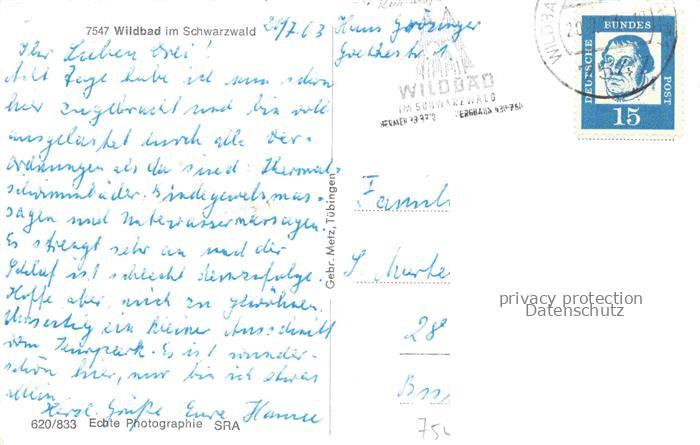 7547 Wildbad im Schwarzwald
20/7.63
Ihr Lieben drei!
Acht Tage habe ich nun schon
hier zugebracht und bin voll
ausgelastet durch alle Ver-
ordnungen als da sind: Thermal-
schwimmbäder, Bindegewebsmas-
sagen und Unterwassermassagen.
Es strengt sehr an und der
Schlaf ist schlecht demzufolge.
Hoffe aber, mich zu gewöhnen.
Umseitig ein kleiner Ausschnitt
vom Kurpark. Es ist wunder-
schön hier, nur bin ich etwas
allein.
Herzl. Grüße Eure Hanne
620/833 Echte Photographie SRA
Gebr. Metz, Tübingen
Goethestr. 1
WILDBAD
IM SCHWARZWALD
BERGBAHN 430-750
WILDBAD
DEUTSCHE BUNDES POST
15
Famil
28
privacy protection
Datenschutz